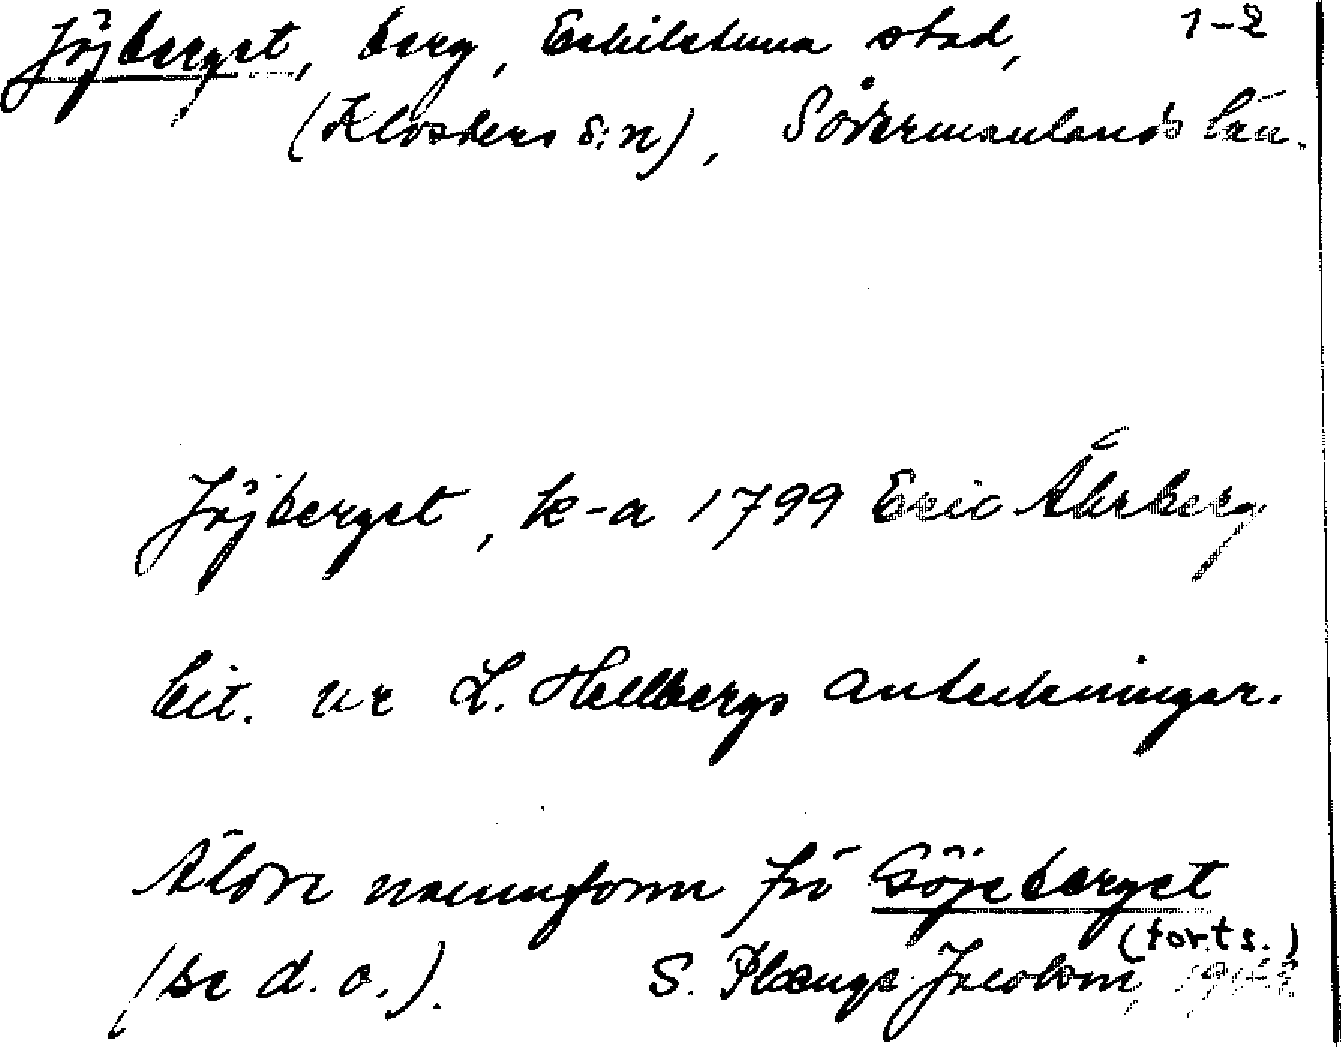 Jöjberget, berg, Eskilstuna stad, 1-2
(Klosters s:n), Södermanlands län.
Jöjberget, k-a 1799 Eric Åhrberg
cit. ur L. Hellbergs anteckningar.
Äldre namnform för Göjeberget
(forts.)
(se d. o.). S. Plænge Jacobson,